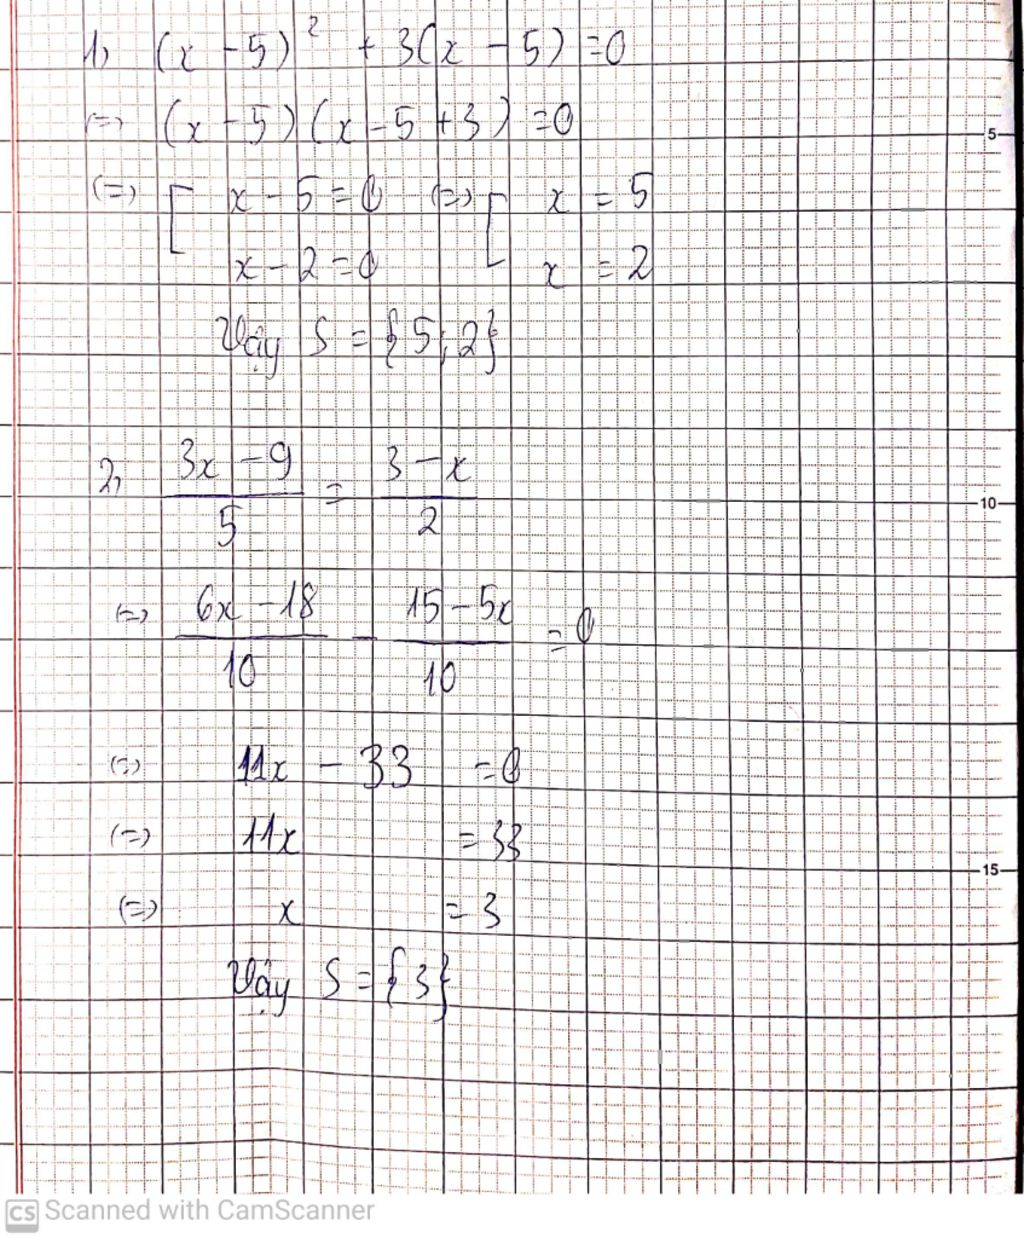 1) (x - 5)² + 3(x - 5) = 0
(=) (x - 5) (x - 5 + 3) = 0
(=) [ x - 5 = 0 (=) [ x = 5
x - 2 = 0 x = 2
Vậy S = {5; 2}
2) (3x - 9)/5 = (3 - x)/2
(=) (6x - 18)/10 - (15 - 5x)/10 = 0
(=) 11x - 33 = 0
(=) 11x = 33
(=) x = 3
Vậy S = {3}
5
10
15
CS Scanned with CamScanner